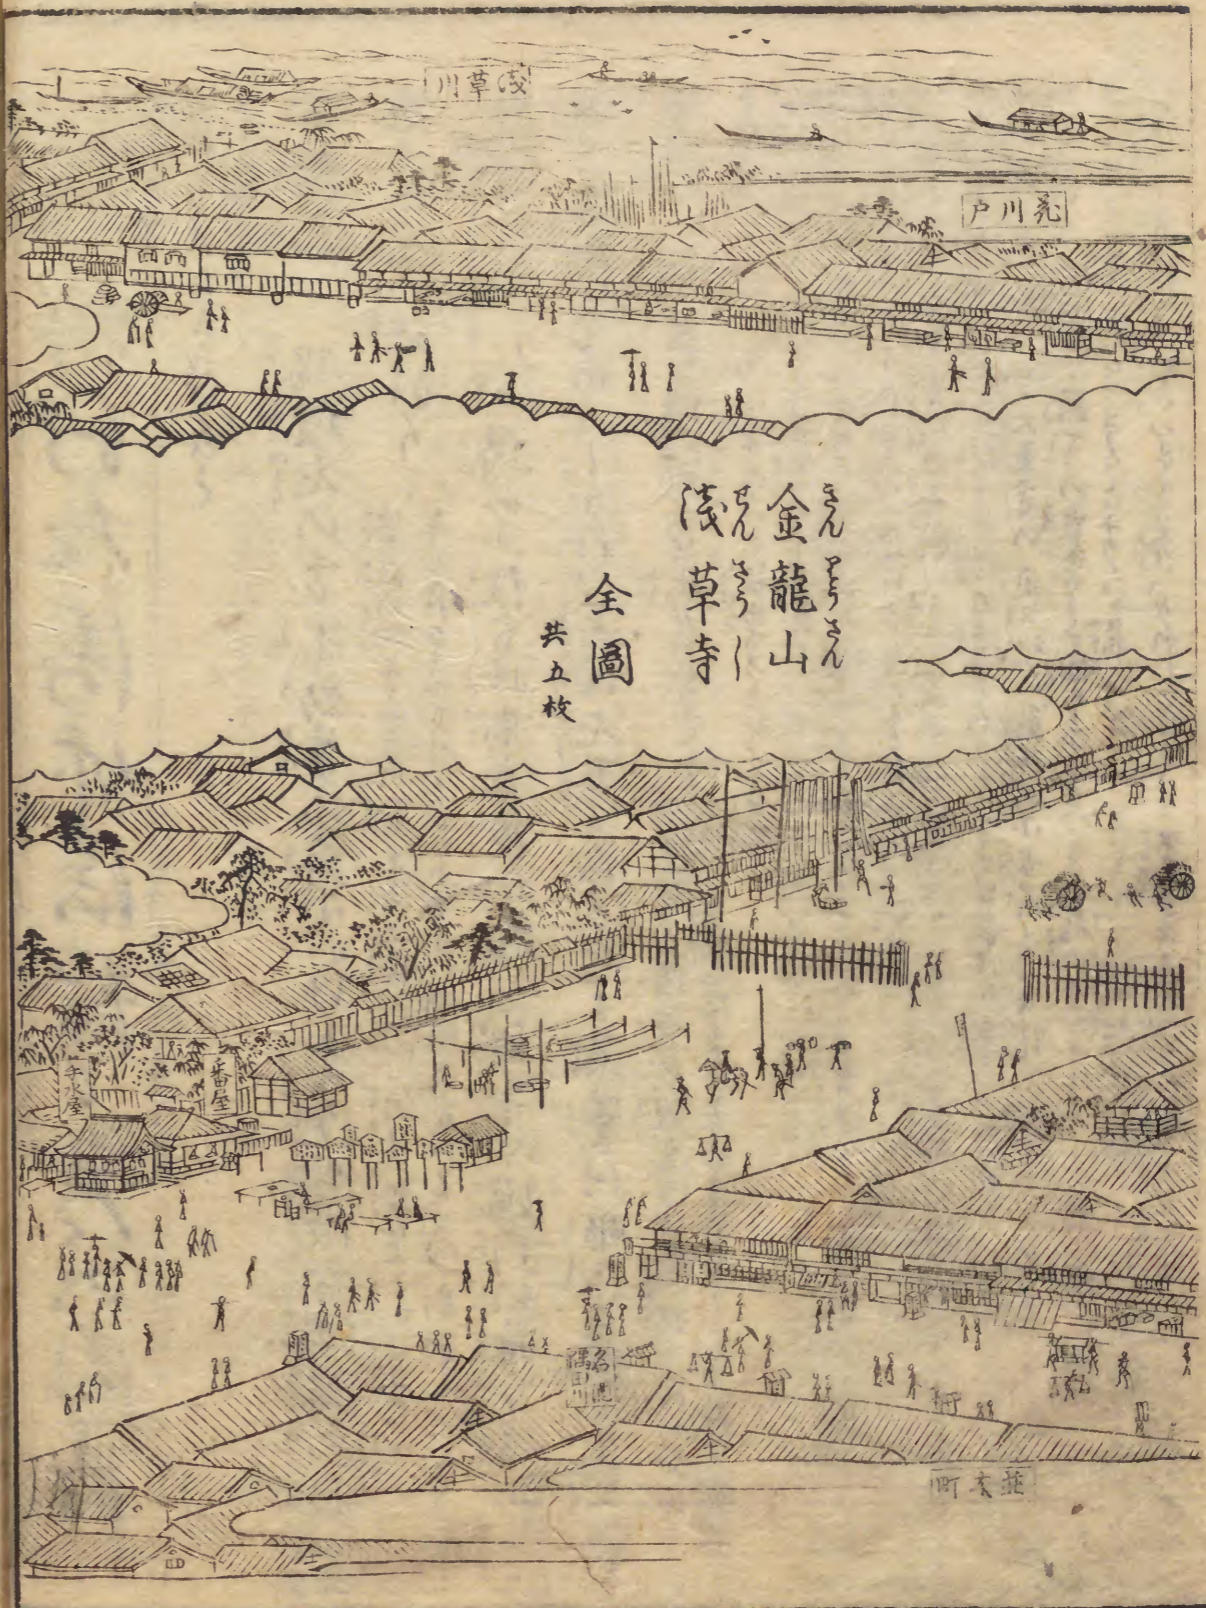 淺草川
花川戸
金龍山
きんりうさん
淺草寺
せんさうじ
全圖
共五枚
手水屋
番屋
名酒
隅田川
並木町